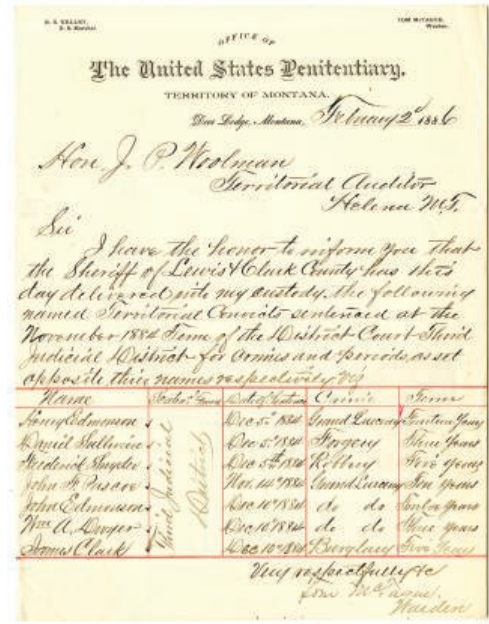 R. S. KELLEY,
U. S. Marshal.
TOM McTAGUE,
Warden.
OFFICE OF
The United States Penitentiary,
TERRITORY OF MONTANA.
Deer Lodge, Montana, February 2d 1886
Hon. J. P. Woolman
Territorial Auditor
Helena M.T.
Sir
I have the honor to inform you that
the Sheriff of Lewis & Clark County has this
day delivered into my custody, the following
named Territorial Convicts sentenced at the
November 1884 Term of the District Court Third
Judicial District for crimes and periods, as set
opposite their names respectively viz
Name Date of Crime Term
Henry Edmonson Dec 5th 1884 Grand Larceny Fourteen Years
Daniel Sullivan Dec 5th 1884 Forgery Three Years
Frederick Snyder Dec 5th 1884 Robbery Five years
John F. Pascoe Nov. 14th 1884 Grand Larceny Ten Years
John Edmonson Dec 10th 1884 do do years
Wm A. Dwyer Dec 10th 1884 do do Three years
James Clark Dec 10th 1884 Burglary Five Years
Third Judicial
District
Very respectfully &c
Tom McTague.
Warden